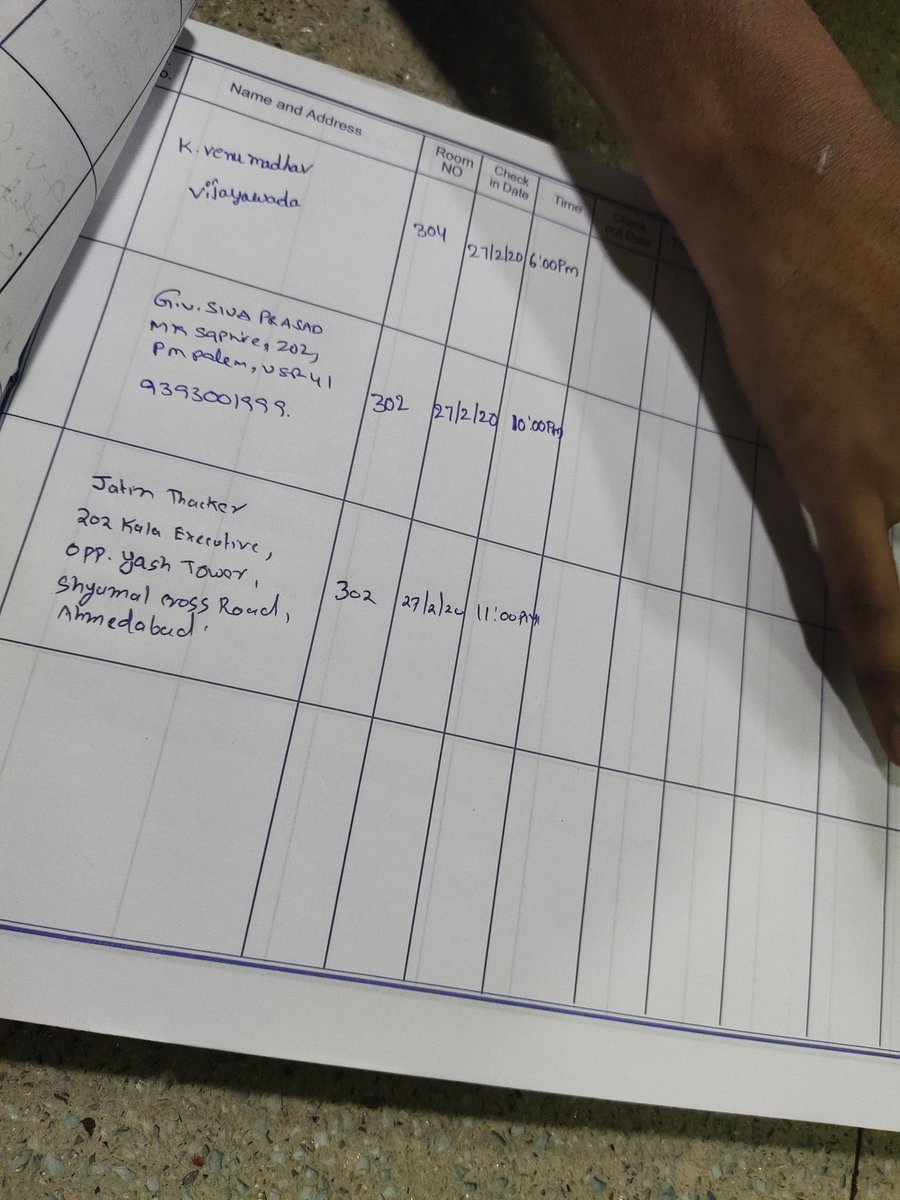 Name and Address
Room NO
Check in Date
Time
Check out Date
K. Venu madhav
Vijayawada
304
27/2/20
6:00Pm
G.V. SIVA PRASAD
MK Saphire, 202,
PM palem, VSP-41
9393001999.
302
27/2/20
10:00Pm
Jatin Thacker
202 Kala Executive,
opp. Yash Tower,
Shyamal Cross Road,
Ahmedabad.
302
27/2/20
11:00PM